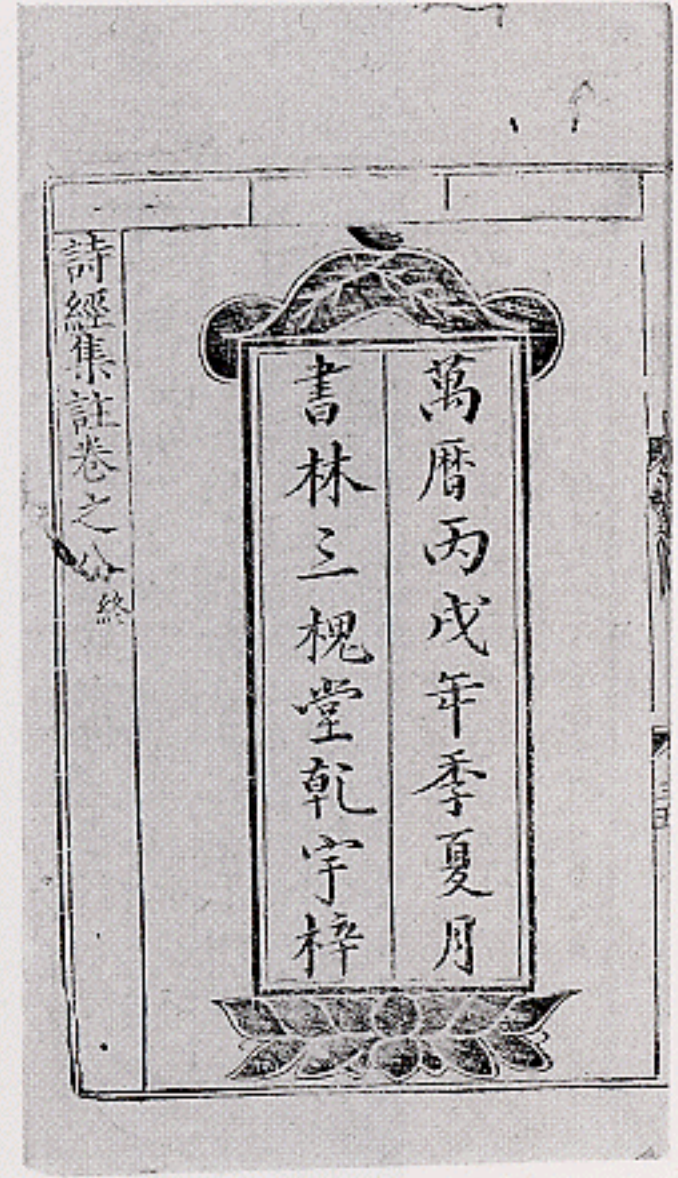 萬曆丙戌年季夏月
書林三槐堂乹宇梓
詩經集註卷之八終